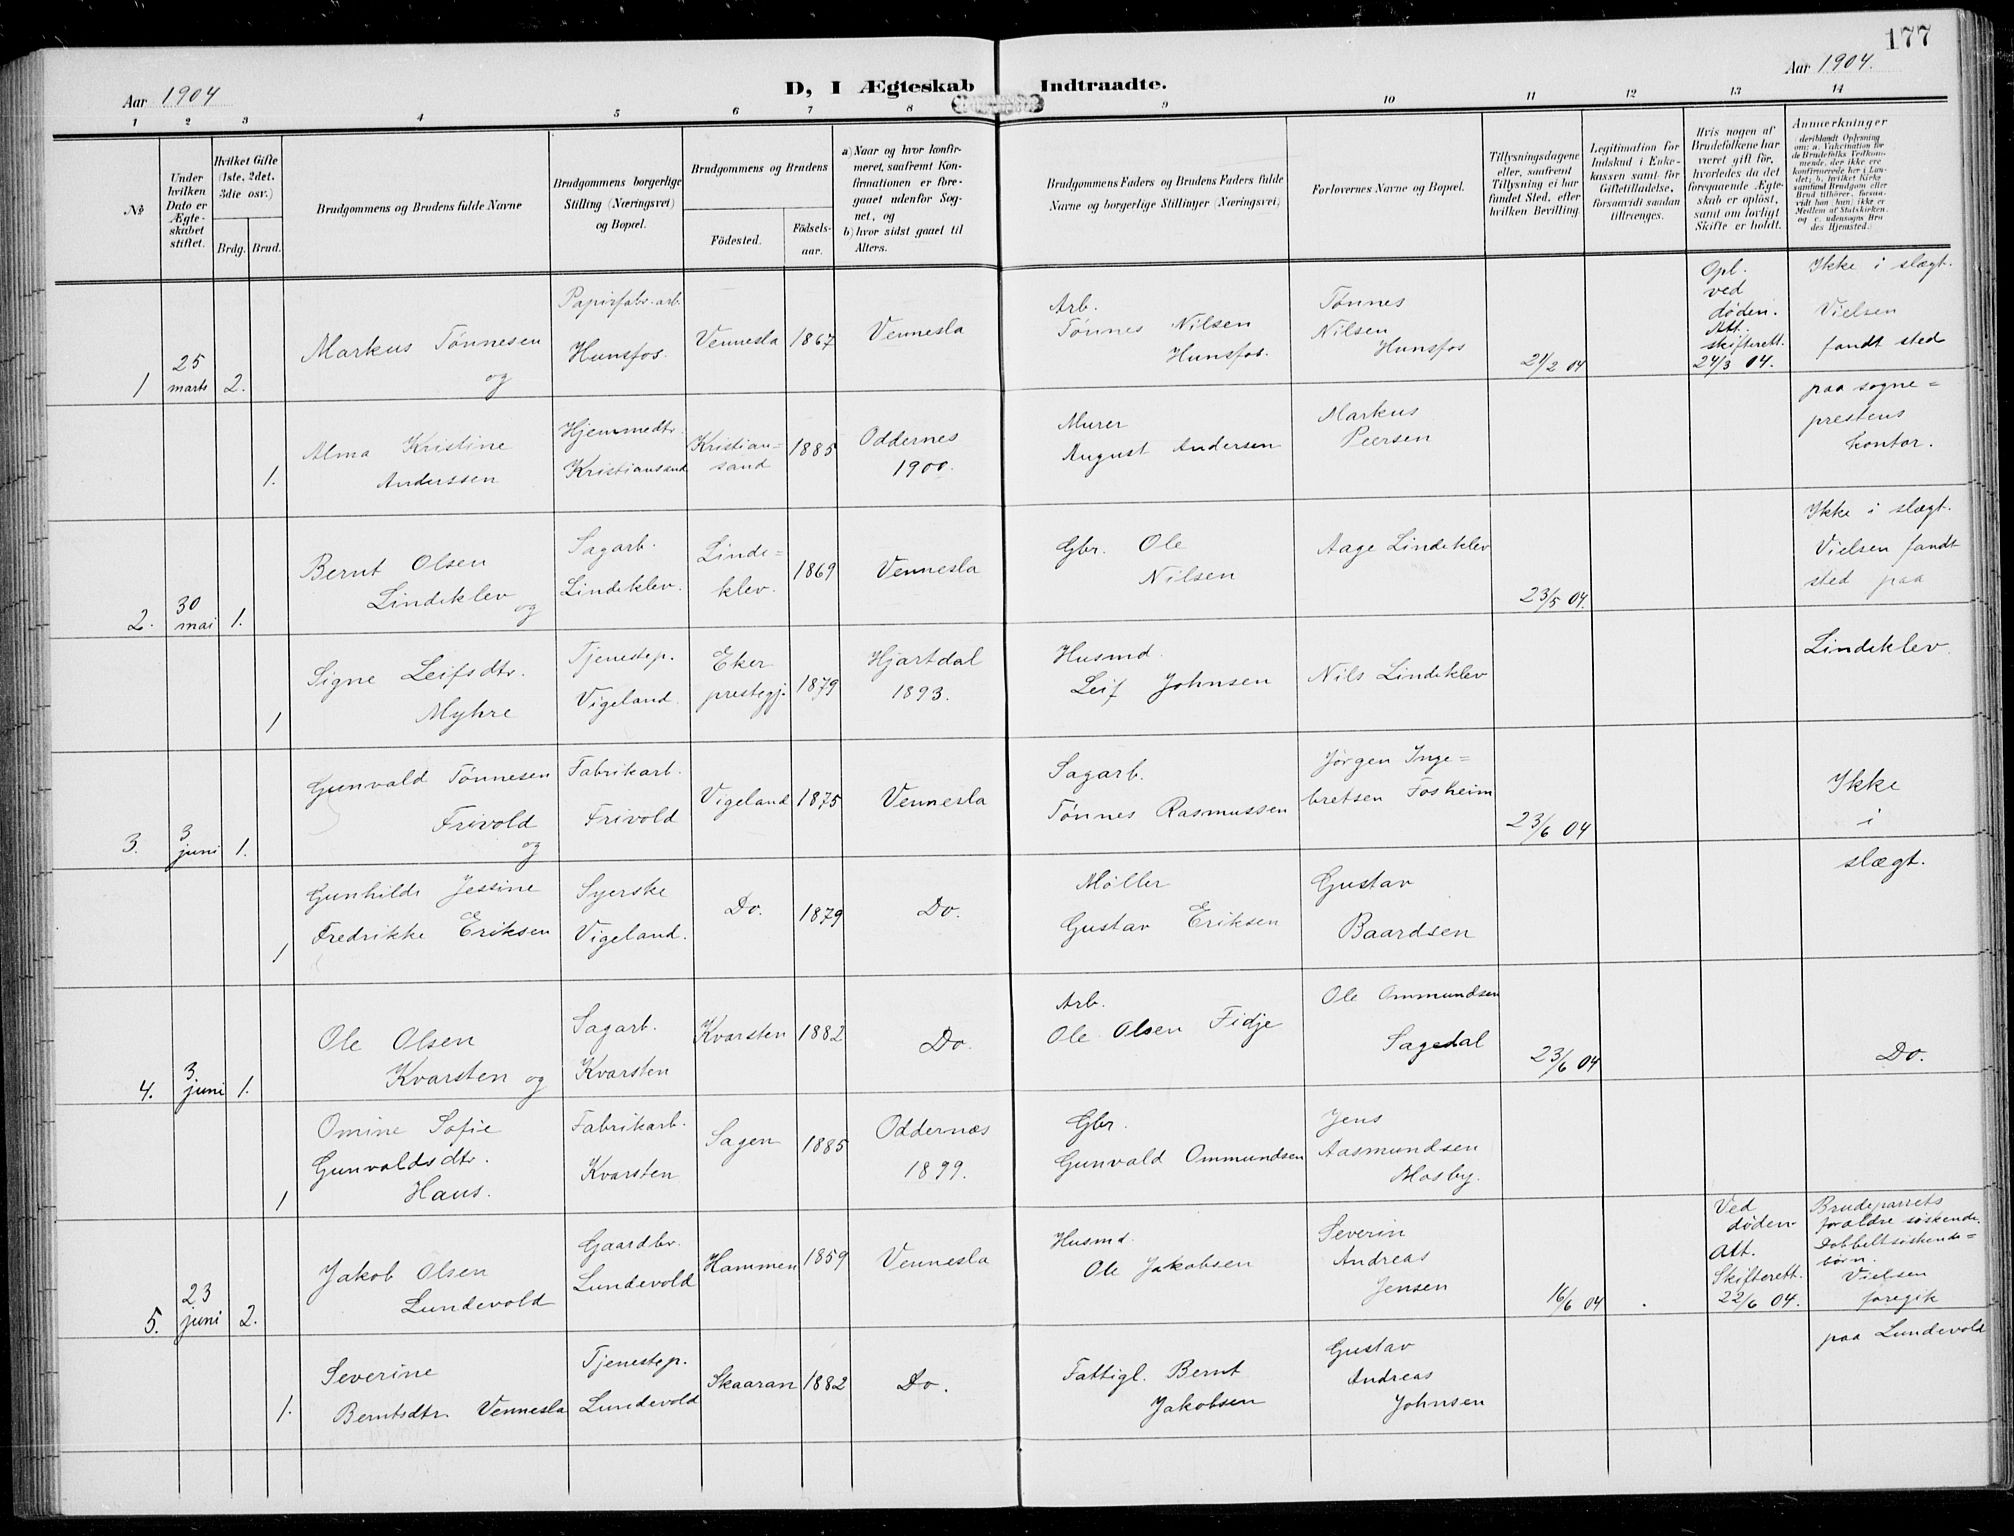 177
Aar 1904
D, I Ægteskab Indtraadte.
Aar 1904.
1 2 3 4 5 6 7 8 9 10 11 12 13 14
No
Under hvilken Dato er Ægteskabet stiftet.
Hvilket Gifte (1ste, 2det, 3die osv.)
Brdg. Brud.
Brudgommens og Brudens fulde Navne
Brudgommens borgerlige Stilling (Næringsvei) og Bopæl.
Brudgommens og Brudens
Födested.
Födsels-aar.
a) Naar og hvor konfirmeret, saafremt Konfirmationen er foregaaet udenfor Sognet, og
b) hvor sidst gaaet til Alters.
Brudgommens Faders og Brudens Faders fulde Navne og borgerlige Stillinger (Næringsvei)
Forlovernes Navne og Bopæl.
Tillysningsdagene eller, saafremt Tillysning ei har fundet Sted, efter hvilken Bevilling.
Legitimation for Indskud i Enkekassen samt for Giftetilladelse, forsaavidt saadan tiltrænges.
Hvis nogen af Brudefolkene har været gift för, hvorledes da det foregaaende Ægteskab er oplöst, samt om lovligt Skifte er holdt.
Anmærkninger
(deriblandt Oplysning om: a. Vaccination for de Brudefolks Vedkommende, der ikke ere konfirmerede her i Landet; b. hvilket Kirkesamfund Brudgom eller Brud tilhörer, forsaavidt han (hun) ikke er Medlem af Statskirken, og c. udensogns Brudes Hjemsted.
1
25 marts
2.
Markus Tønnesen
og
Papirfabr.arb.
Hunsfos.
Vennesla
1867
Vennesla
Arb.
Tønnes Nilsen
Hunsfos.
Tønnes
Nilsen
Hunsfos
21/2 04
Opl.
ved
døden.
Att.
skifterett.
24/3 04.
Ikke i slægt.
Vielsen
fandt sted
paa sogne=
prestens
kontor.
1.
Alma Kristine
Anderssen
Hjemmedtr.
Kristiansand
Kristian=
sand
1885
Oddernes
1900.
Murer
August Andersen
Markus
Peersen
2.
30 mai
1.
Bernt Olsen
Lindeklev
og
Sagarb.
Lindeklev.
Linde=
klev.
1869
Vennesla
Gbr. Ole
Nilsen
Aage Lindeklev
23/5 04.
Ikke i slægt.
Vielsen fandt
sted paa
Lindeklev
1
Signe Leifsdtr.
Myhre
Tjenestep.
Vigeland.
Eker
prestegj.
1879
Hjartdal
1893.
Husmd.
Leif Johnsen
Nils Lindeklev
3.
3 juni
1.
Gunvald Tønnesen
Frivold
og
Fabrikarb.
Frivold
Vigeland
1875
Vennesla
Sagarb.
Tønnes Rasmussen
Jørgen Inge=
bretsen Fosheim
23/6 04
Ikke
i
slægt.
1
Gunhilde Jessine
Fredrikke Eriksen
Syerske
Vigeland.
Do.
1879
Do.
Møller
Gustav Eriksen
Gustav
Baardsen
4.
3 juni
1.
Ole Olsen
Kvarsten og
Sagarb.
Kvarsten
Kvarsten
1882
Do.
Arb.
Ole Olsen Fidje
Ole Ommundsen
Sagedal
23/6 04
Do.
1
Omine Sofie
Gunvaldsdtr.
Haus.
Fabrikarb.
Kvarsten
Sagen
1885
Oddernæs
1899.
Gbr.
Gunvald Ommundsen
Jens
Aasmundsen
Mosby.
5.
23 juni
2.
Jakob Olsen
Lundevold
Gaardbr.
Lundevold
Hammen
1859
Vennesla
Husmd.
Ole Jakobsen
Severin
Andreas
Jensen
16/6 04
Ved
døden
Att.
Skifterett.
22/6 04.
Brudeparrets
forældre søskende.
Dobbeltsøskende=
børn.
Vielsen
foregik
paa Lundevold
1.
Severine
Berntsdtr. Vennesla
Tjenestep.
Lundevold
Skaaran
1882
Do.
Fattigl. Bernt
Jakobsen
Gustav
Andreas
Johnsen